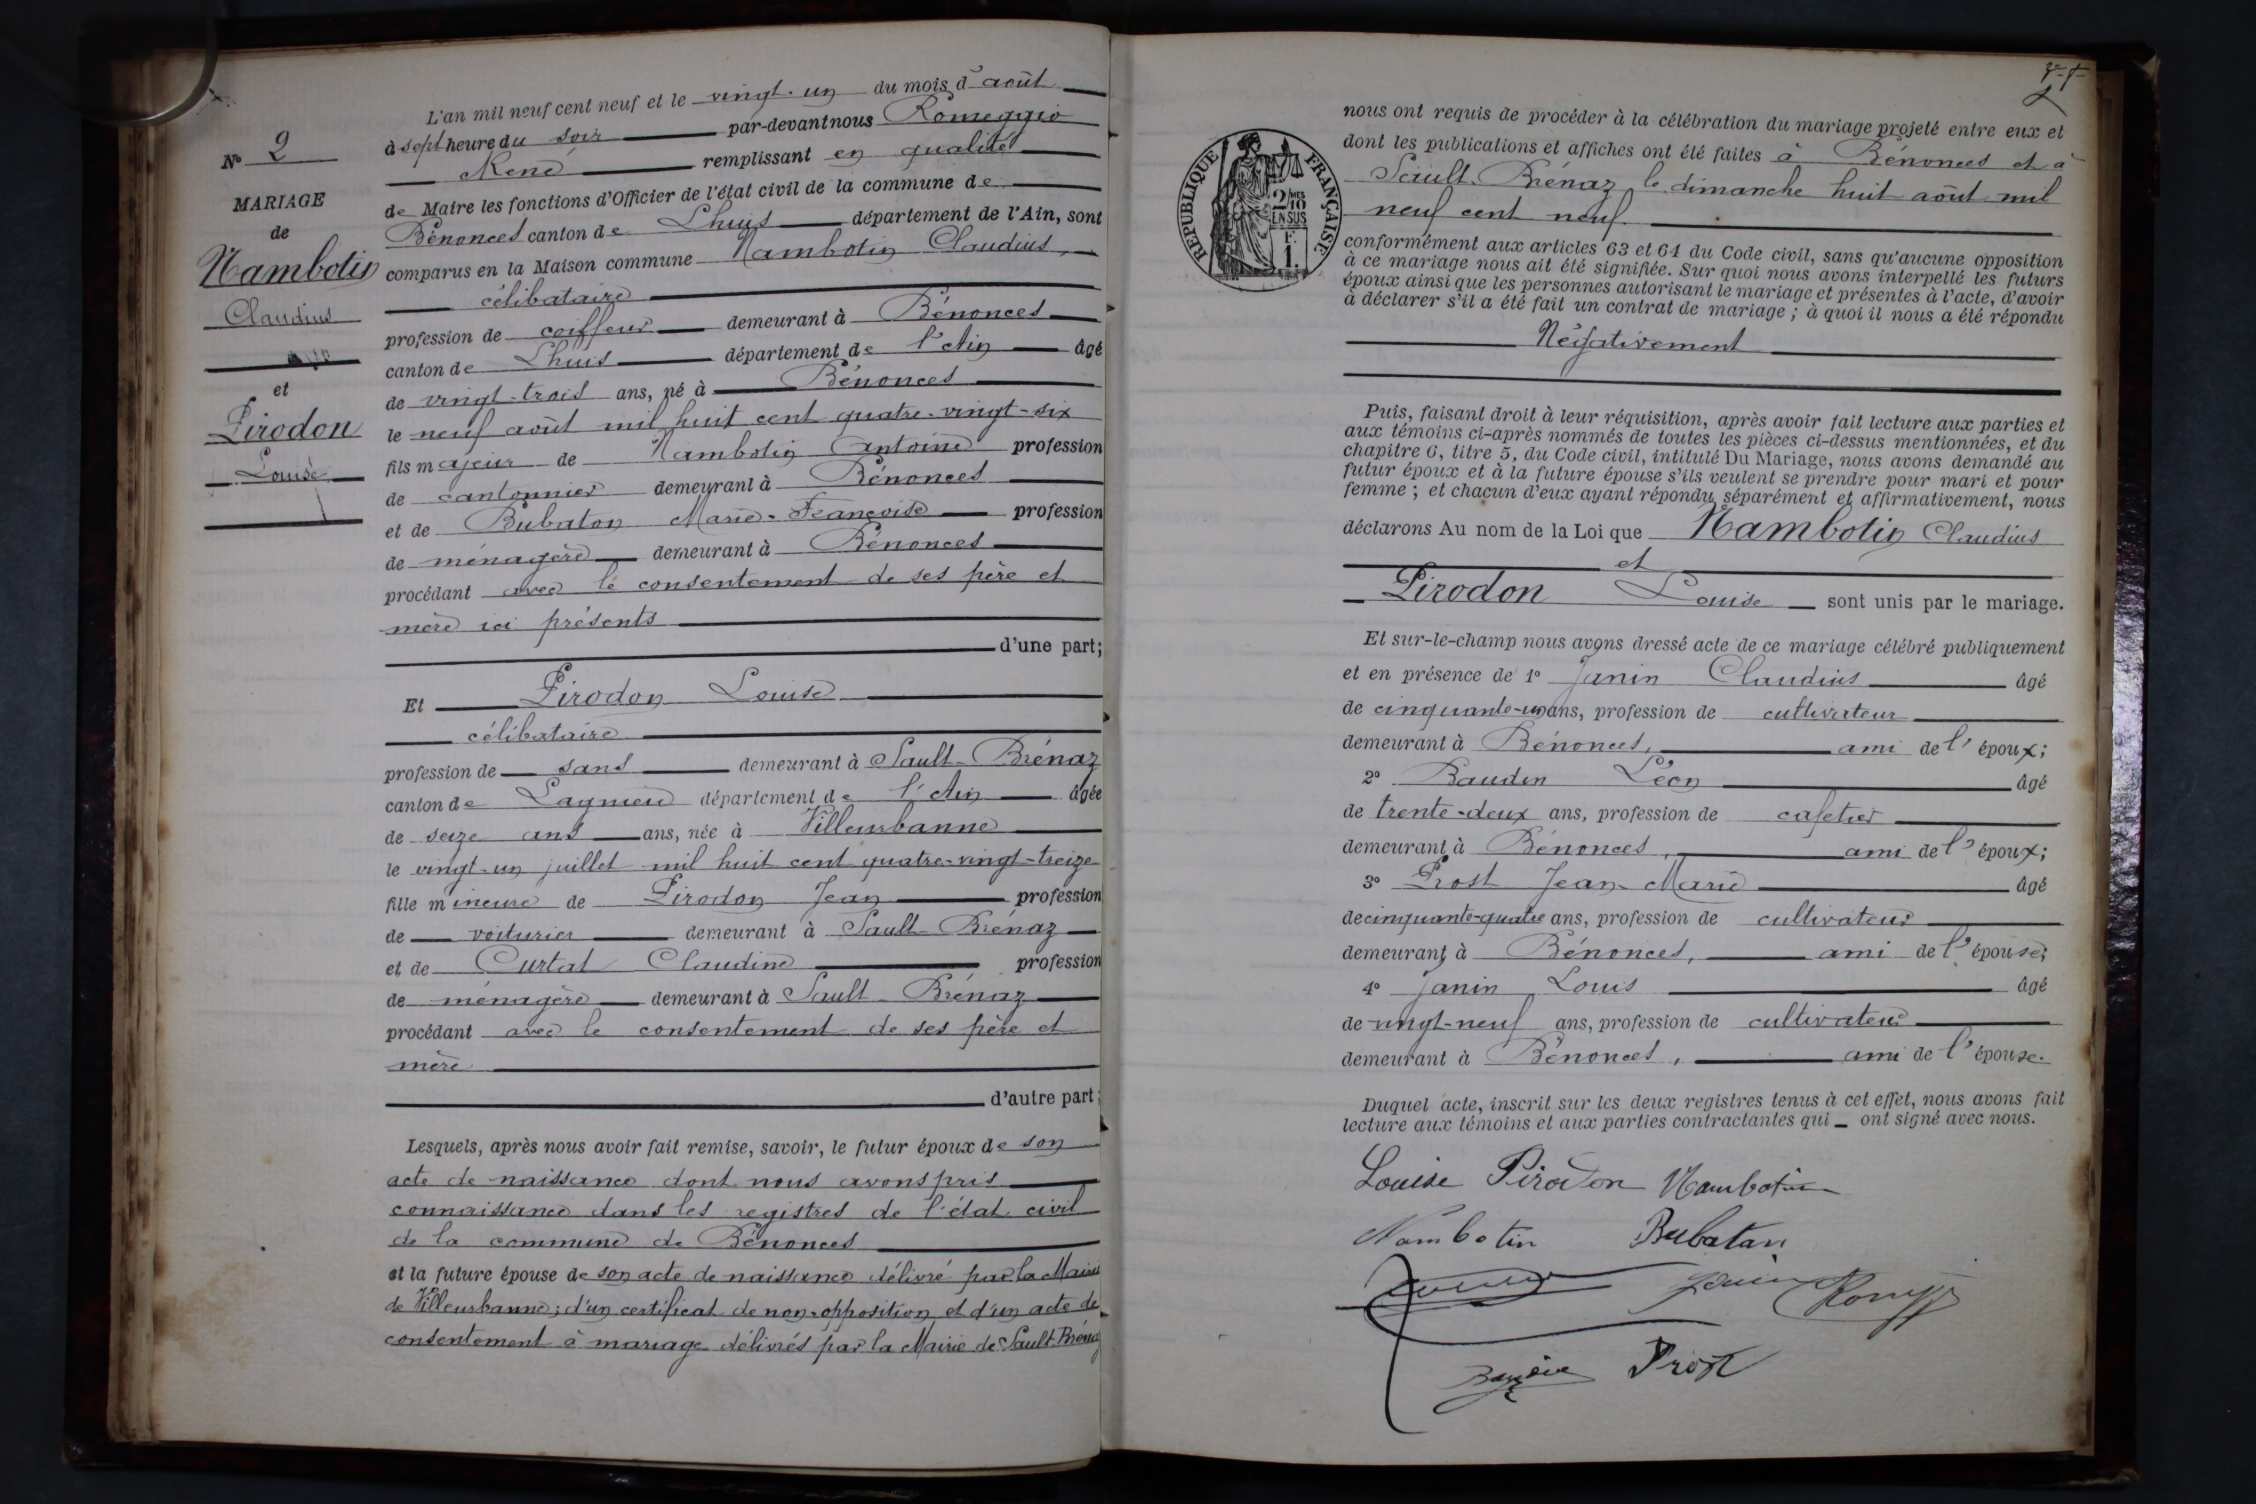 N° 2
MARIAGE
de
Nambotin
Claudius
et
Pirodon
Louise
L'an mil neuf cent neuf et le vingt-un du mois d'août
à sept heure du soir par-devant nous Romeggio
René remplissant en qualité
de Maire les fonctions d'Officier de l'état civil de la commune de
Bénonces canton de Lhuis département de l'Ain, sont
comparus en la Maison commune Nambotin Claudius,
célibataire
profession de coiffeur demeurant à Bénonces
canton de Lhuis département de l'Ain âgé
de vingt-trois ans, né à Bénonces
le neuf août mil huit cent quatre-vingt-six
fils majeur de Nambotin Antoine profession
de cantonnier demeurant à Bénonces
et de Bubaton Marie-Françoise profession
de ménagère demeurant à Bénonces
procédant avec le consentement de ses père et
mère ici présents
d'une part;
Et Pirodon Louise
célibataire
profession de sans demeurant à Sault-Brénaz
canton de Lagnieu département de l'Ain âgée
de seize ans ans, née à Villeurbanne
le vingt-un juillet mil huit cent quatre-vingt-treize
fille mineure de Pirodon Jean profession
de voiturier demeurant à Sault-Brénaz
et de Curtat Claudine profession
de ménagère demeurant à Sault-Brénaz
procédant avec le consentement de ses père et
mère
d'autre part;
Lesquels, après nous avoir fait remise, savoir, le futur époux de son
acte de naissance dont nous avons pris
connaissance dans les registres de l'état civil
de la commune de Bénonces
et la future épouse de son acte de naissance délivré par la Mairie
de Villeurbanne; d'un certificat de non-opposition et d'un acte de
consentement à mariage délivrés par la Mairie de Sault-Brénaz
RÉPUBLIQUE FRANÇAISE
2/10 MES
EN SUS
F.
1.
nous ont requis de procéder à la célébration du mariage projeté entre eux et
dont les publications et affiches ont été faites à Bénonces et à
Sault-Brénaz le dimanche huit août mil
neuf cent neuf
conformément aux articles 63 et 64 du Code civil, sans qu'aucune opposition
à ce mariage nous ait été signifiée. Sur quoi nous avons interpellé les futurs
époux ainsi que les personnes autorisant le mariage et présentes à l'acte, d'avoir
à déclarer s'il a été fait un contrat de mariage; à quoi il nous a été répondu
Négativement
Puis, faisant droit à leur réquisition, après avoir fait lecture aux parties et
aux témoins ci-après nommés de toutes les pièces ci-dessus mentionnées, et du
chapitre 6, titre 5, du Code civil, intitulé Du Mariage, nous avons demandé au
futur époux et à la future épouse s'ils veulent se prendre pour mari et pour
femme; et chacun d'eux ayant répondu séparément et affirmativement, nous
déclarons Au nom de la Loi que Nambotin Claudius
et
Pirodon Louise sont unis par le mariage.
Et sur-le-champ nous avons dressé acte de ce mariage célébré publiquement
et en présence de 1° Janin Claudius âgé
de cinquante-un ans, profession de cultivateur
demeurant à Bénonces, ami de l'époux;
2° Baudin Léon âgé
de trente-deux ans, profession de cafetier
demeurant à Bénonces, ami de l'époux;
3° Prost Jean-Marie âgé
de cinquante-quatre ans, profession de cultivateur
demeurant à Bénonces, ami de l'épouse;
4° Janin Louis âgé
de vingt-neuf ans, profession de cultivateur
demeurant à Bénonces, ami de l'épouse.
Duquel acte, inscrit sur les deux registres tenus à cet effet, nous avons fait
lecture aux témoins et aux parties contractantes qui ont signé avec nous.
Louise Pirodon Nambotin
Nambotin Bubatan
Janin
Prost